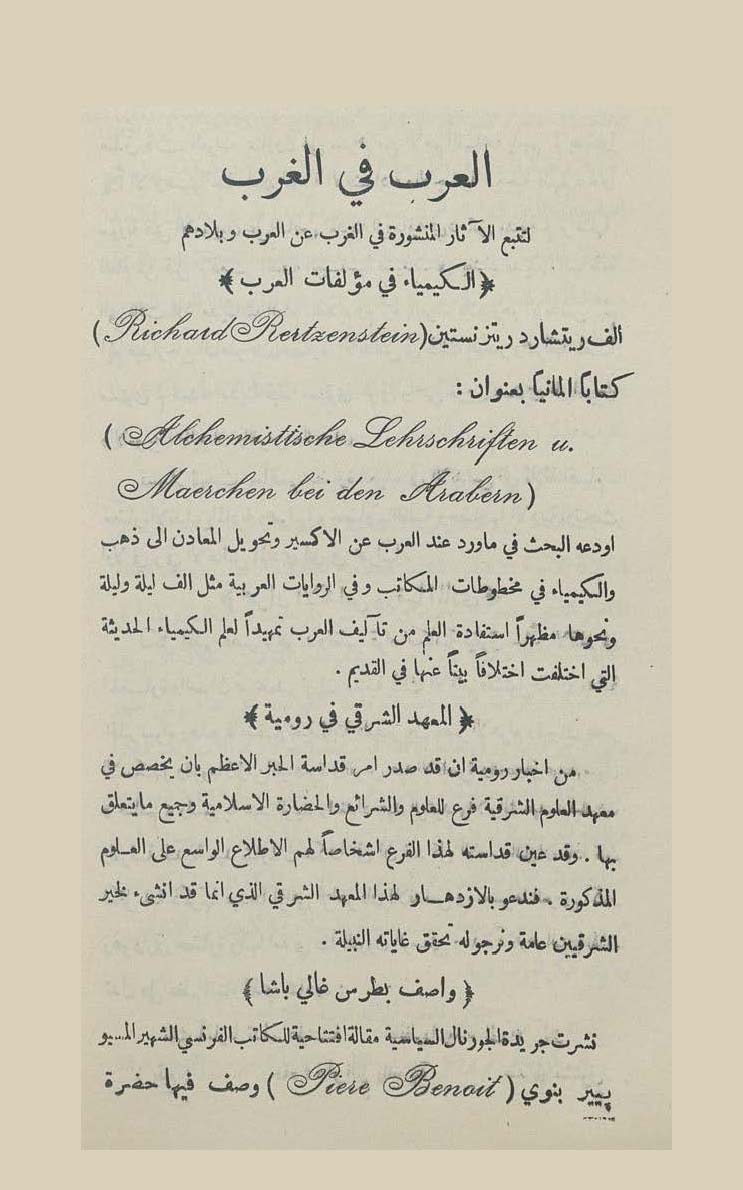 العرب في الغرب
لتتبع الآثار المنشورة في الغرب عن العرب وبلادهم
﴿الكيمياء في مؤلفات العرب﴾
الف ريتشارد ريتزنستين (Richard Rertzenstein)
كتاباً المانياً بعنوان :
( Alchemistische Lehrschriften u.
Maerchen bei den Arabern )
اودعه البحث في ماورد عند العرب عن الاكسير وتحويل المعادن الى ذهب
والكيمياء في مخطوطات المكاتب وفي الروايات العربية مثل الف ليلة وليلة
ونحوها مظهراً استفادة العلم من تآليف العرب تمهيداً لعلم الكيمياء الحديثة
التي اختلفت اختلافاً بيناً عنها في القديم .
﴿ المعهد الشرقي في رومية ﴾
من اخبار رومية ان قد صدر امر قداسة الحبر الاعظم بان يخصص في
معهد العلوم الشرقية فرع للعلوم والشرائع والحضارة الاسلامية وجميع مايتعلق
بها . وقد عين قداسته لهذا الفرع اشخاصاً لهم الاطلاع الواسع على العلوم
المذكورة . فندعو بالازدهار لهذا المعهد الشرقي الذي انما قد انشىء لخير
الشرقيين عامة ونرجو له تحقق غاياته النبيلة .
﴿ واصف بطرس غالي باشا ﴾
نشرت جريدة الجورنال السياسية مقالة افتتاحية للكاتب الفرنسي الشهير المسيو
پيير بنوي ( Piere Benoit ) وصف فيها حضرة